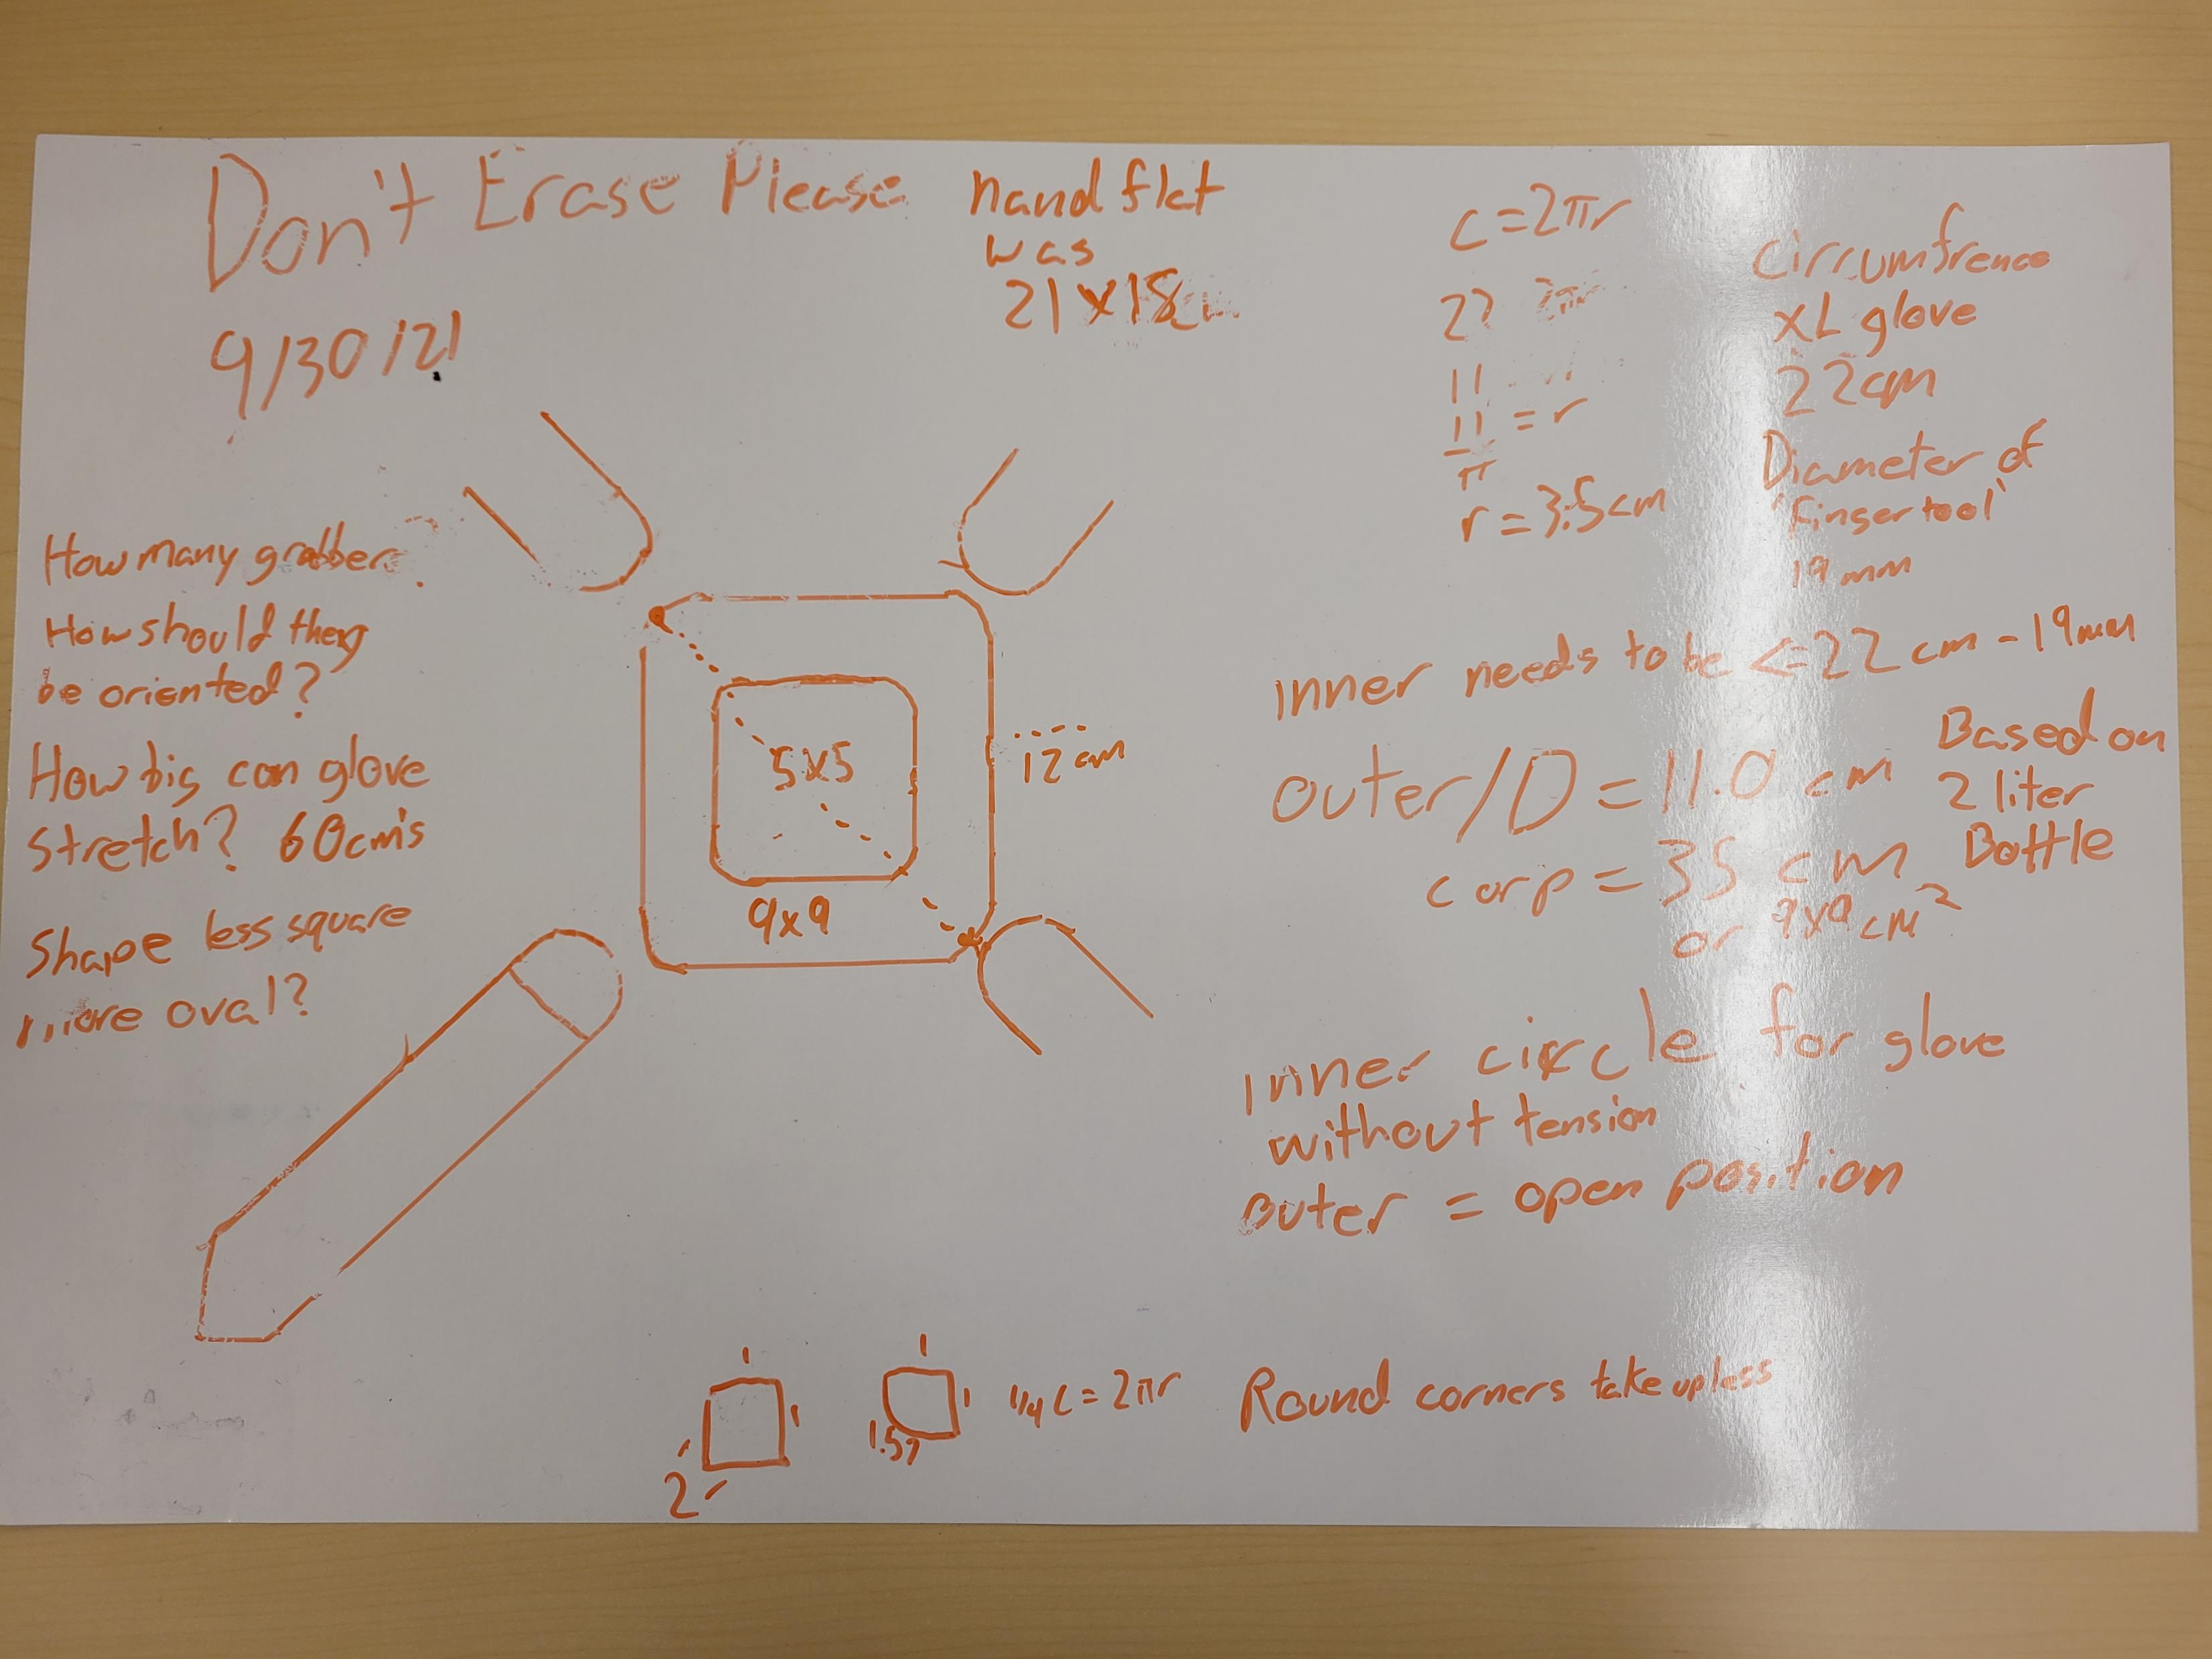 Don't Erase Please
9/30/21
hand flat
was
21 x 18cm
C=2πr
22 2πr
11
11/π = r
r = 3.5cm
Circumfrence
XL glove
22cm
Diameter of
'Finger tool'
19mm
How many grabbers?
How should they
be oriented?
How big can glove
stretch? 60cm's
Shape less square
more oval?
5x5
9x9
12 cm
inner needs to be <=22 cm - 19mm
outer/D = 11.0 cm
C or p = 35 cm
or 9x9 cm²
Based on
2 liter
Bottle
inner circle for glove
without tension
outer = open position
1
1
2
1
1
1.57
1/4 C = 2πr
Round corners take up less